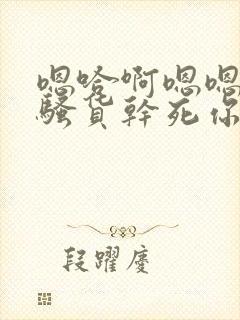 嗯哈啊嗯嗯
骚货干死你
段躍慶